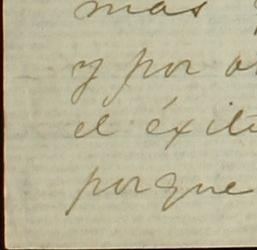 mas
y por
el éxito
porque